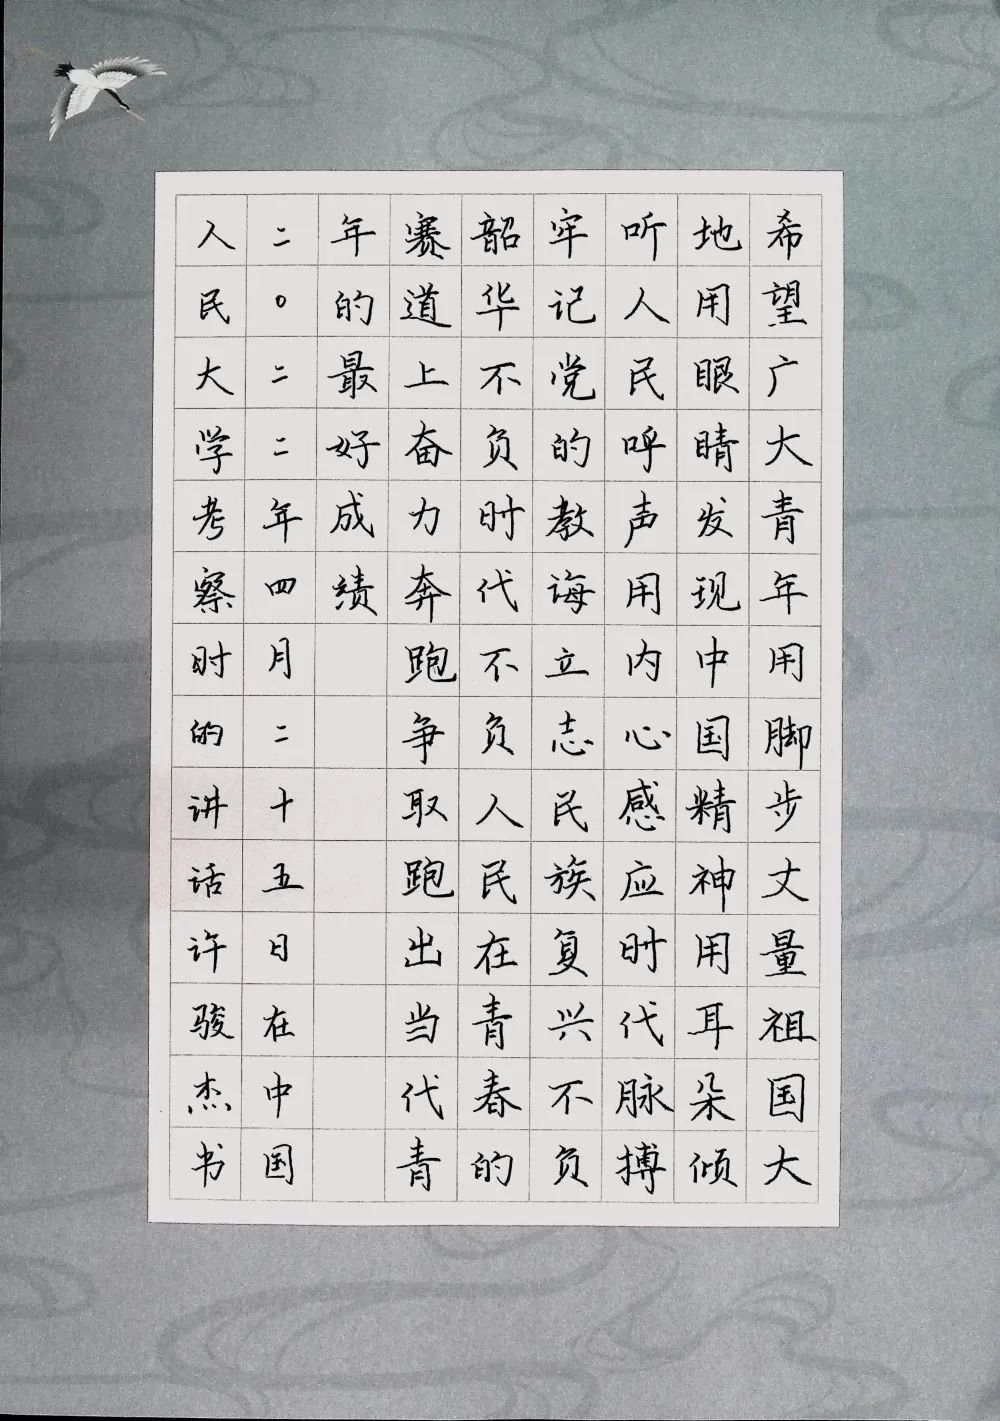 希望广大青年用脚步丈量祖国大
地用眼睛发现中国精神用耳朵倾
听人民呼声用内心感应时代脉搏
牢记党的教诲立志民族复兴不负
韶华不负时代不负人民在青春的
赛道上奋力奔跑争取跑出当代青
年的最好成绩
二〇二二年四月二十五日在中国
人民大学考察时的讲话许骏杰书